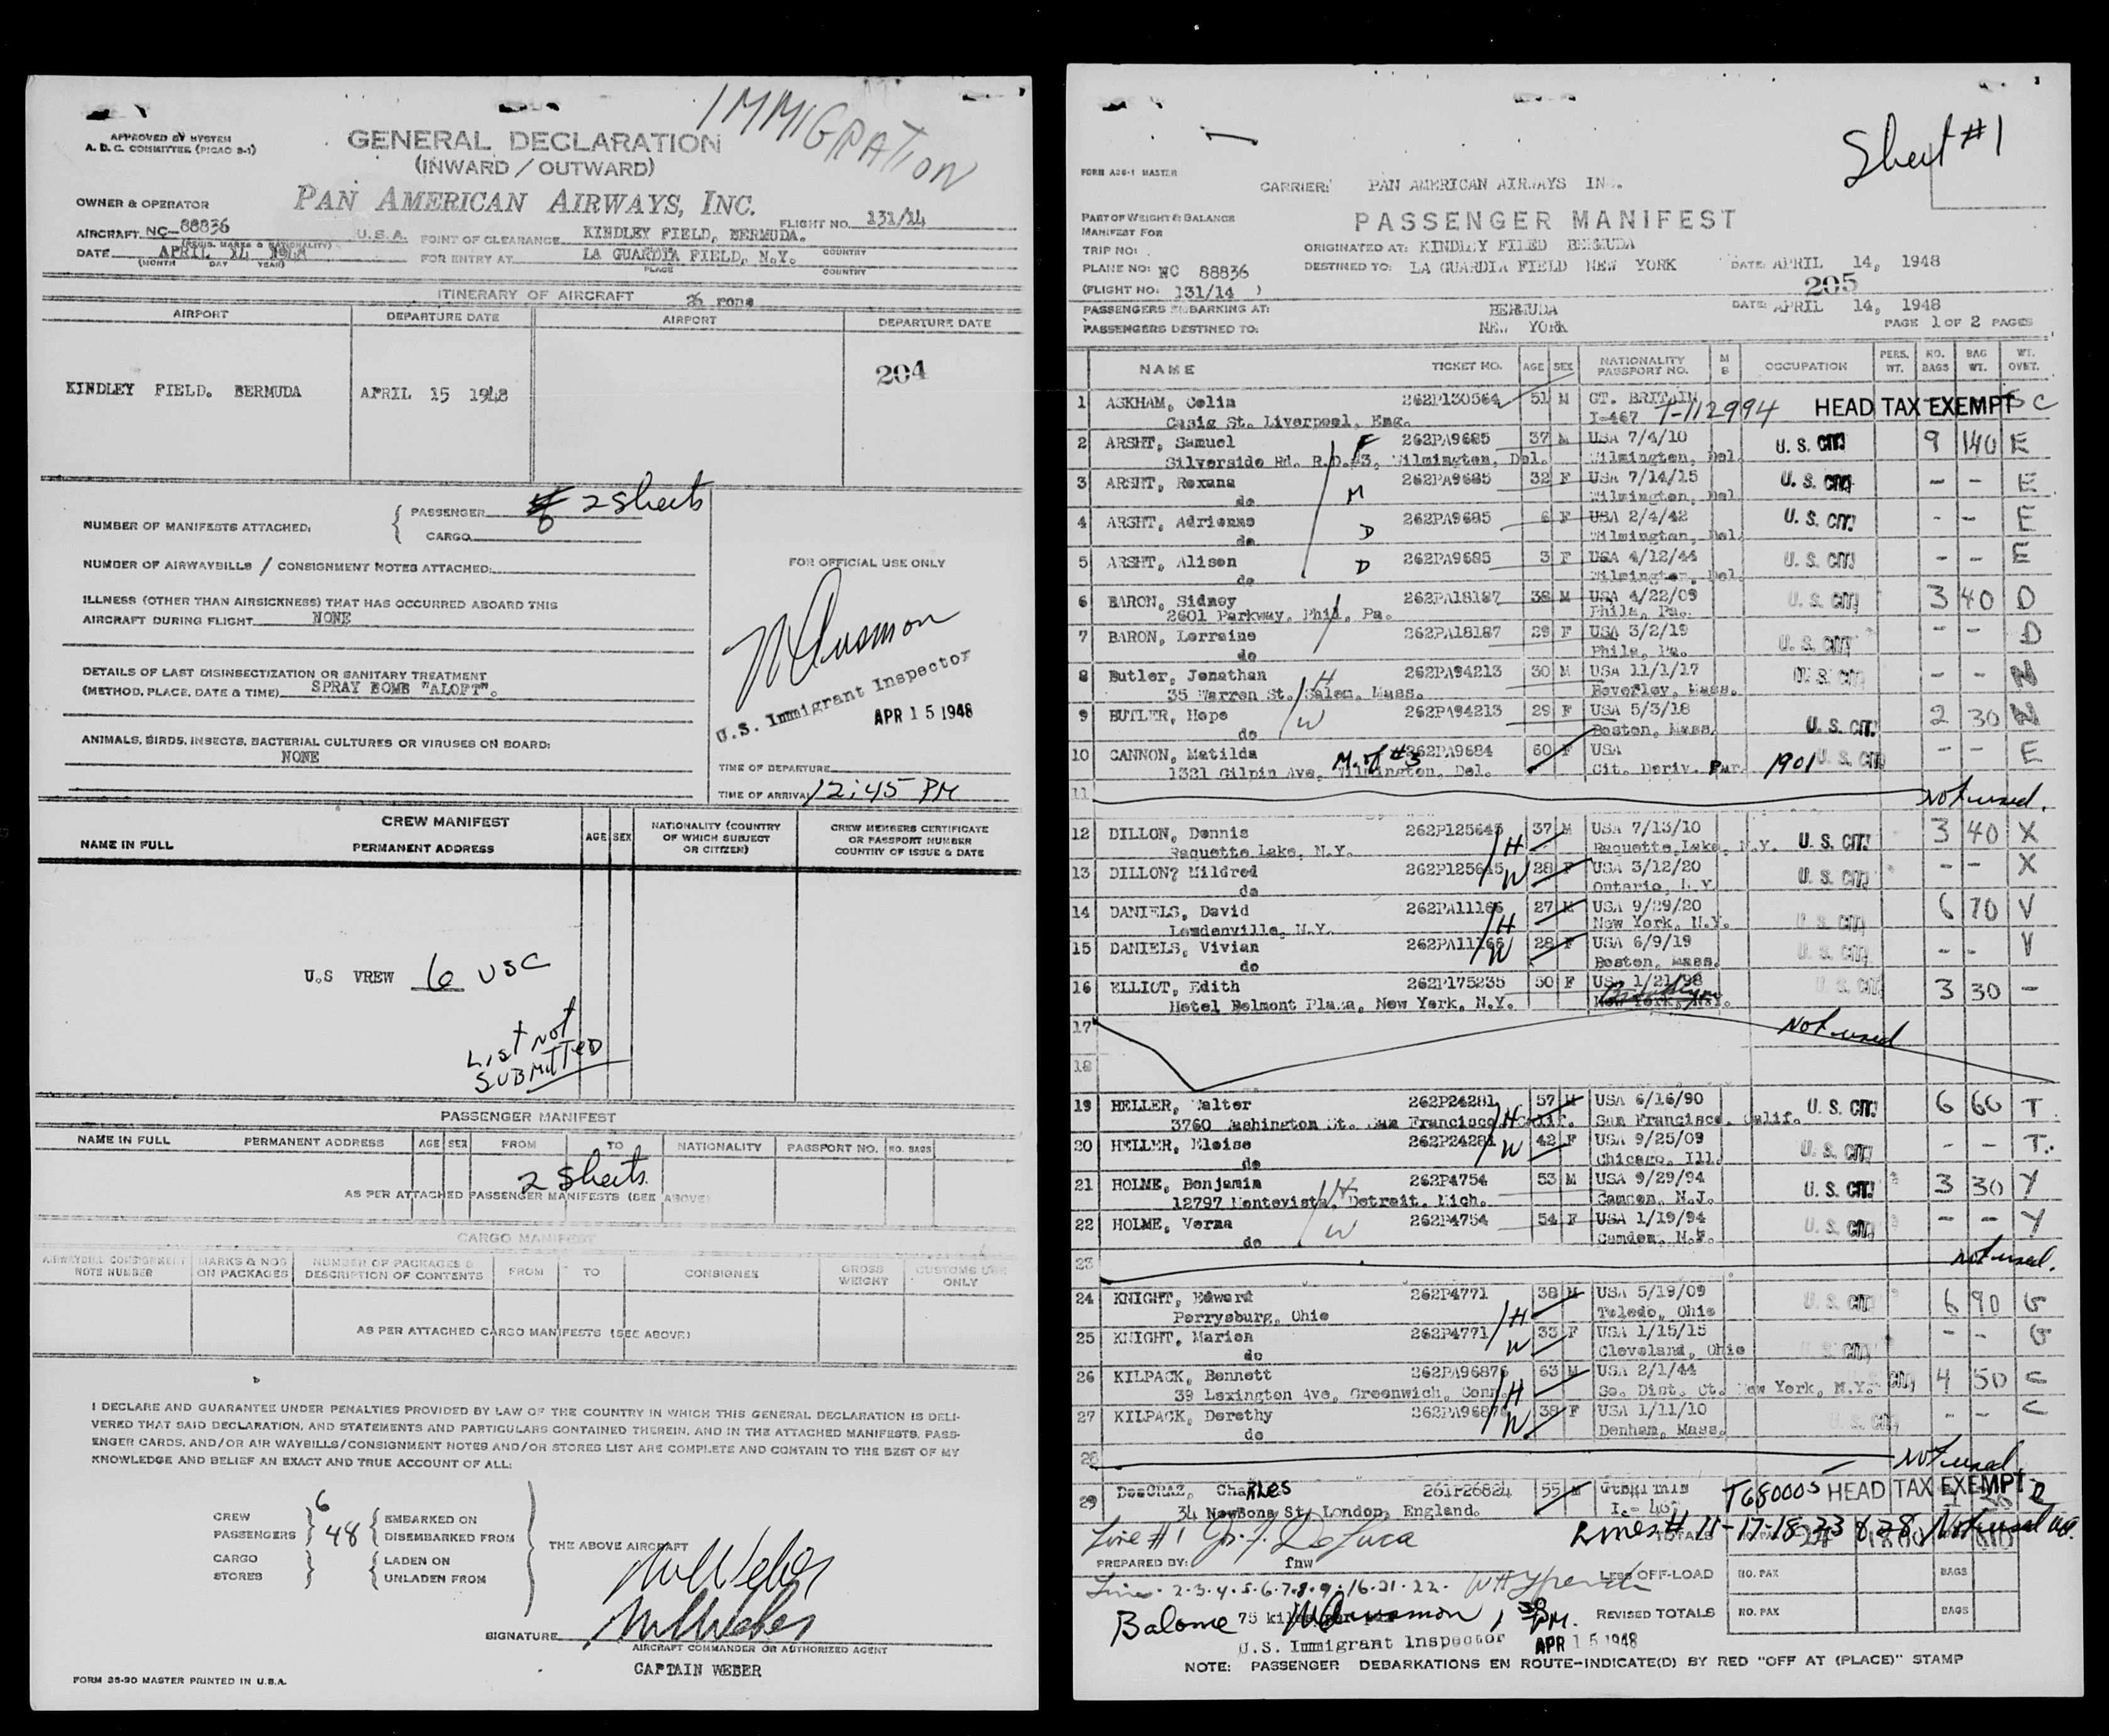 IMMIGRATION
APPROVED BY HYSTEM
A. D. C. COMMITTEE (PICAO 3-1)
GENERAL DECLARATION
(INWARD / OUTWARD)
OWNER & OPERATOR
PAN AMERICAN AIRWAYS, INC.
FLIGHT NO. 131/14
AIRCRAFT NC-88836 U.S.A. POINT OF CLEARANCE KINDLEY FIELD, BERMUDA.
(REGIS. MARKS & NATIONALITY) COUNTRY
DATE APRIL 14 1948 FOR ENTRY AT LA GUARDIA FIELD, N.Y.
(MONTH DAY YEAR) PLACE COUNTRY
ITINERARY OF AIRCRAFT
AIRPORT DEPARTURE DATE AIRPORT DEPARTURE DATE
204
KINDLEY FIELD. BERMUDA APRIL 15 1948
NUMBER OF MANIFESTS ATTACHED: { PASSENGER 2 Sheets
CARGO
NUMBER OF AIRWAYBILLS / CONSIGNMENT NOTES ATTACHED:
FOR OFFICIAL USE ONLY
ILLNESS (OTHER THAN AIRSICKNESS) THAT HAS OCCURRED ABOARD THIS
AIRCRAFT DURING FLIGHT NONE
DETAILS OF LAST DISINSECTIZATION OR SANITARY TREATMENT
(METHOD, PLACE, DATE & TIME) SPRAY BOMB "ALOFT".
U.S. Immigrant Inspector
APR 15 1948
ANIMALS, BIRDS, INSECTS, BACTERIAL CULTURES OR VIRUSES ON BOARD:
NONE
TIME OF DEPARTURE
TIME OF ARRIVAL 12:45 PM
CREW MANIFEST
NAME IN FULL PERMANENT ADDRESS AGE SEX NATIONALITY (COUNTRY OF WHICH SUBJECT OR CITIZEN) CREW MEMBERS CERTIFICATE OR PASSPORT NUMBER COUNTRY OF ISSUE & DATE
U.S VREW 6 USC
List Not
SUBMITTED
PASSENGER MANIFEST
NAME IN FULL PERMANENT ADDRESS AGE SEX FROM TO NATIONALITY PASSPORT NO. NO. BAGS
2 Sheets.
AS PER ATTACHED PASSENGER MANIFESTS (SEE ABOVE)
CARGO MANIFEST
AIRWAYBILL CONSIGNMENT NOTE NUMBER MARKS & NOS ON PACKAGES NUMBER OF PACKAGES & DESCRIPTION OF CONTENTS FROM TO CONSIGNEE GROSS WEIGHT CUSTOMS USE ONLY
AS PER ATTACHED CARGO MANIFESTS (SEE ABOVE)
I DECLARE AND GUARANTEE UNDER PENALTIES PROVIDED BY LAW OF THE COUNTRY IN WHICH THIS GENERAL DECLARATION IS DELI-
VERED THAT SAID DECLARATION, AND STATEMENTS AND PARTICULARS CONTAINED THEREIN, AND IN THE ATTACHED MANIFESTS, PASS-
ENGER CARDS, AND/OR AIR WAYBILLS/CONSIGNMENT NOTES AND/OR STORES LIST ARE COMPLETE AND CONTAIN TO THE BEST OF MY
KNOWLEDGE AND BELIEF AN EXACT AND TRUE ACCOUNT OF ALL:
CREW 6 EMBARKED ON
PASSENGERS 48 DISEMBARKED FROM
THE ABOVE AIRCRAFT
CARGO LADEN ON
STORES UNLADEN FROM
SIGNATURE
AIRCRAFT COMMANDER OR AUTHORIZED AGENT
CAPTAIN WEBER
FORM 35-30 MASTER PRINTED IN U.S.A.
Sheet #1
FORM A36-1 MASTER
CARRIER: PAN AMERICAN AIRWAYS INC.
PART OF WEIGHT & BALANCE
MANIFEST FOR
PASSENGER MANIFEST
TRIP NO: ORIGINATED AT: KINDLEY FILED BERMUDA
PLANE NO: NC 88836 DESTINED TO: LA GUARDIA FIELD NEW YORK DATE: APRIL 14, 1948
205
(FLIGHT NO: 131/14 )
PASSENGERS EMBARKING AT: BERMUDA DATE: APRIL 14, 1948
PASSENGERS DESTINED TO: NEW YORK PAGE 1 OF 2 PAGES
NAME TICKET NO. AGE SEX NATIONALITY PASSPORT NO. M S OCCUPATION PERS. WT. NO. BAGS BAG WT. WT. OVET.
1 ASKHAM, Colin 262P130564 51 M GT. BRITAIN
Casig St. Liverpool, Eng. I-467 T-112994 HEAD TAX EXEMPT C
2 ARSHT, Samuel F 262PA9685 37 M USA 7/4/10 U. S. CIT. 9 140 E
Silverside Rd. R.D.#3, Wilmington, Del. Wilmington, Del.
3 ARSHT, Roxana 262PA9685 32 F USA 7/14/15 U. S. CIT. - - E
do M Wilmington, Del
4 ARSHT, Adrienne 262PA9685 6 F USA 2/4/42 U. S. CIT. - - E
do D Wilmington, Del.
5 ARSHT, Alison D 262PA9685 3 F USA 4/12/44 U. S. CIT. - - E
do Wilmington, Del.
6 BARON, Sidney 262PA18187 38 M USA 4/22/09 U. S. CIT. 3 40 D
2601 Parkway, Phil, Pa. Phila, Pa.
7 BARON, Lorraine 262PA18187 29 F USA 3/2/19 U. S. CIT. - - D
do Phila, Pa.
8 Butler, Jonathan H 262PA94213 30 M USA 11/1/17 U. S. CIT. - - N
35 Warren St. Salem, Mass. Beverley, Mass.
9 BUTLER, Hope W 262PA94213 29 F USA 5/3/18 U. S. CIT. 2 30 N
do Boston, Mass.
10 CANNON, Matilda M. of #3 262PA9684 60 F USA - - E
1321 Gilpin Ave, Wilmington, Del. Cit. Deriv. Par. 1901 U. S. CIT.
11 Not used.
12 DILLON, Dennis 262P125645 37 M USA 7/13/10 3 40 X
Raquette Lake, N.Y. H Raquette Lake, N.Y. U. S. CIT.
13 DILLON? Mildred 262P125645 W 28 F USA 3/12/20 U. S. CIT. - - X
do Ontario, N.Y
14 DANIELS, David 262PA11166 27 M USA 9/29/20 U. S. CIT. 6 70 V
Loudenville, N.Y. H New York, N.Y.
15 DANIELS, Vivian 262PA11166 W 28 F USA 6/9/19 U. S. CIT. - - V
do Boston, Mass.
16 ELLIOT, Edith 262P175235 50 F USA 1/21/98 U. S. CIT. 3 30 -
Hotel Belmont Plaza, New York, N.Y. New York, N.Y. Brooklyn
17 Not used
18
19 HELLER, Walter 262P24281 57 M USA 6/16/90 U. S. CIT. 6 60 T
3760 Washington St. San Francisco, Calif. H San Francisco, Calif.
20 HELLER, Eloise 262P24281 W 42 F USA 9/25/09 U. S. CIT. - - T.
do Chicago, Ill.
21 HOLME, Benjamin 262P4754 53 M USA 9/29/94 U. S. CIT. 3 30 Y
12797 Montevista, Detroit, Mich. H Camden, N.J.
22 HOLME, Verna W 262P4754 54 F USA 1/19/94 U. S. CIT. - - Y
do Camden, N.J.
23 not used.
24 KNIGHT, Edward 262P4771 38 M USA 5/19/09 U. S. CIT. 6 90 G
Perrysburg, Ohio H Toledo, Ohio
25 KNIGHT, Marion 262P4771 W 33 F USA 1/15/15 U. S. CIT. - - G
do Cleveland, Ohio
26 KILPACK, Bennett 262PA96876 63 M USA 2/1/44 4 50 C
39 Lexington Ave, Greenwich, Conn. H So. Dist. Ct. New York, N.Y.
27 KILPACK, Dorothy 262PA96876 W 38 F USA 1/11/10 U. S. CIT. - - C
do Denham, Mass.
28 Not used
29 DesGRAZ, Charles 261P26824 55 M T68000S HEAD TAX EXEMPT
34 NewBons St. London, England.
Line #1 Lines # 11-17-18-23 & 28 Not used
TOTALS
PREPARED BY: fnw
LESS OFF-LOAD NO. PAX BAGS
Line. 2-3-4-5-6-7-8-9-16-21-22.
75 REVISED TOTALS NO. PAX BAGS
U.S. Immigrant Inspector APR 15 1948
NOTE: PASSENGER DEBARKATIONS EN ROUTE-INDICATE(D) BY RED "OFF AT (PLACE)" STAMP